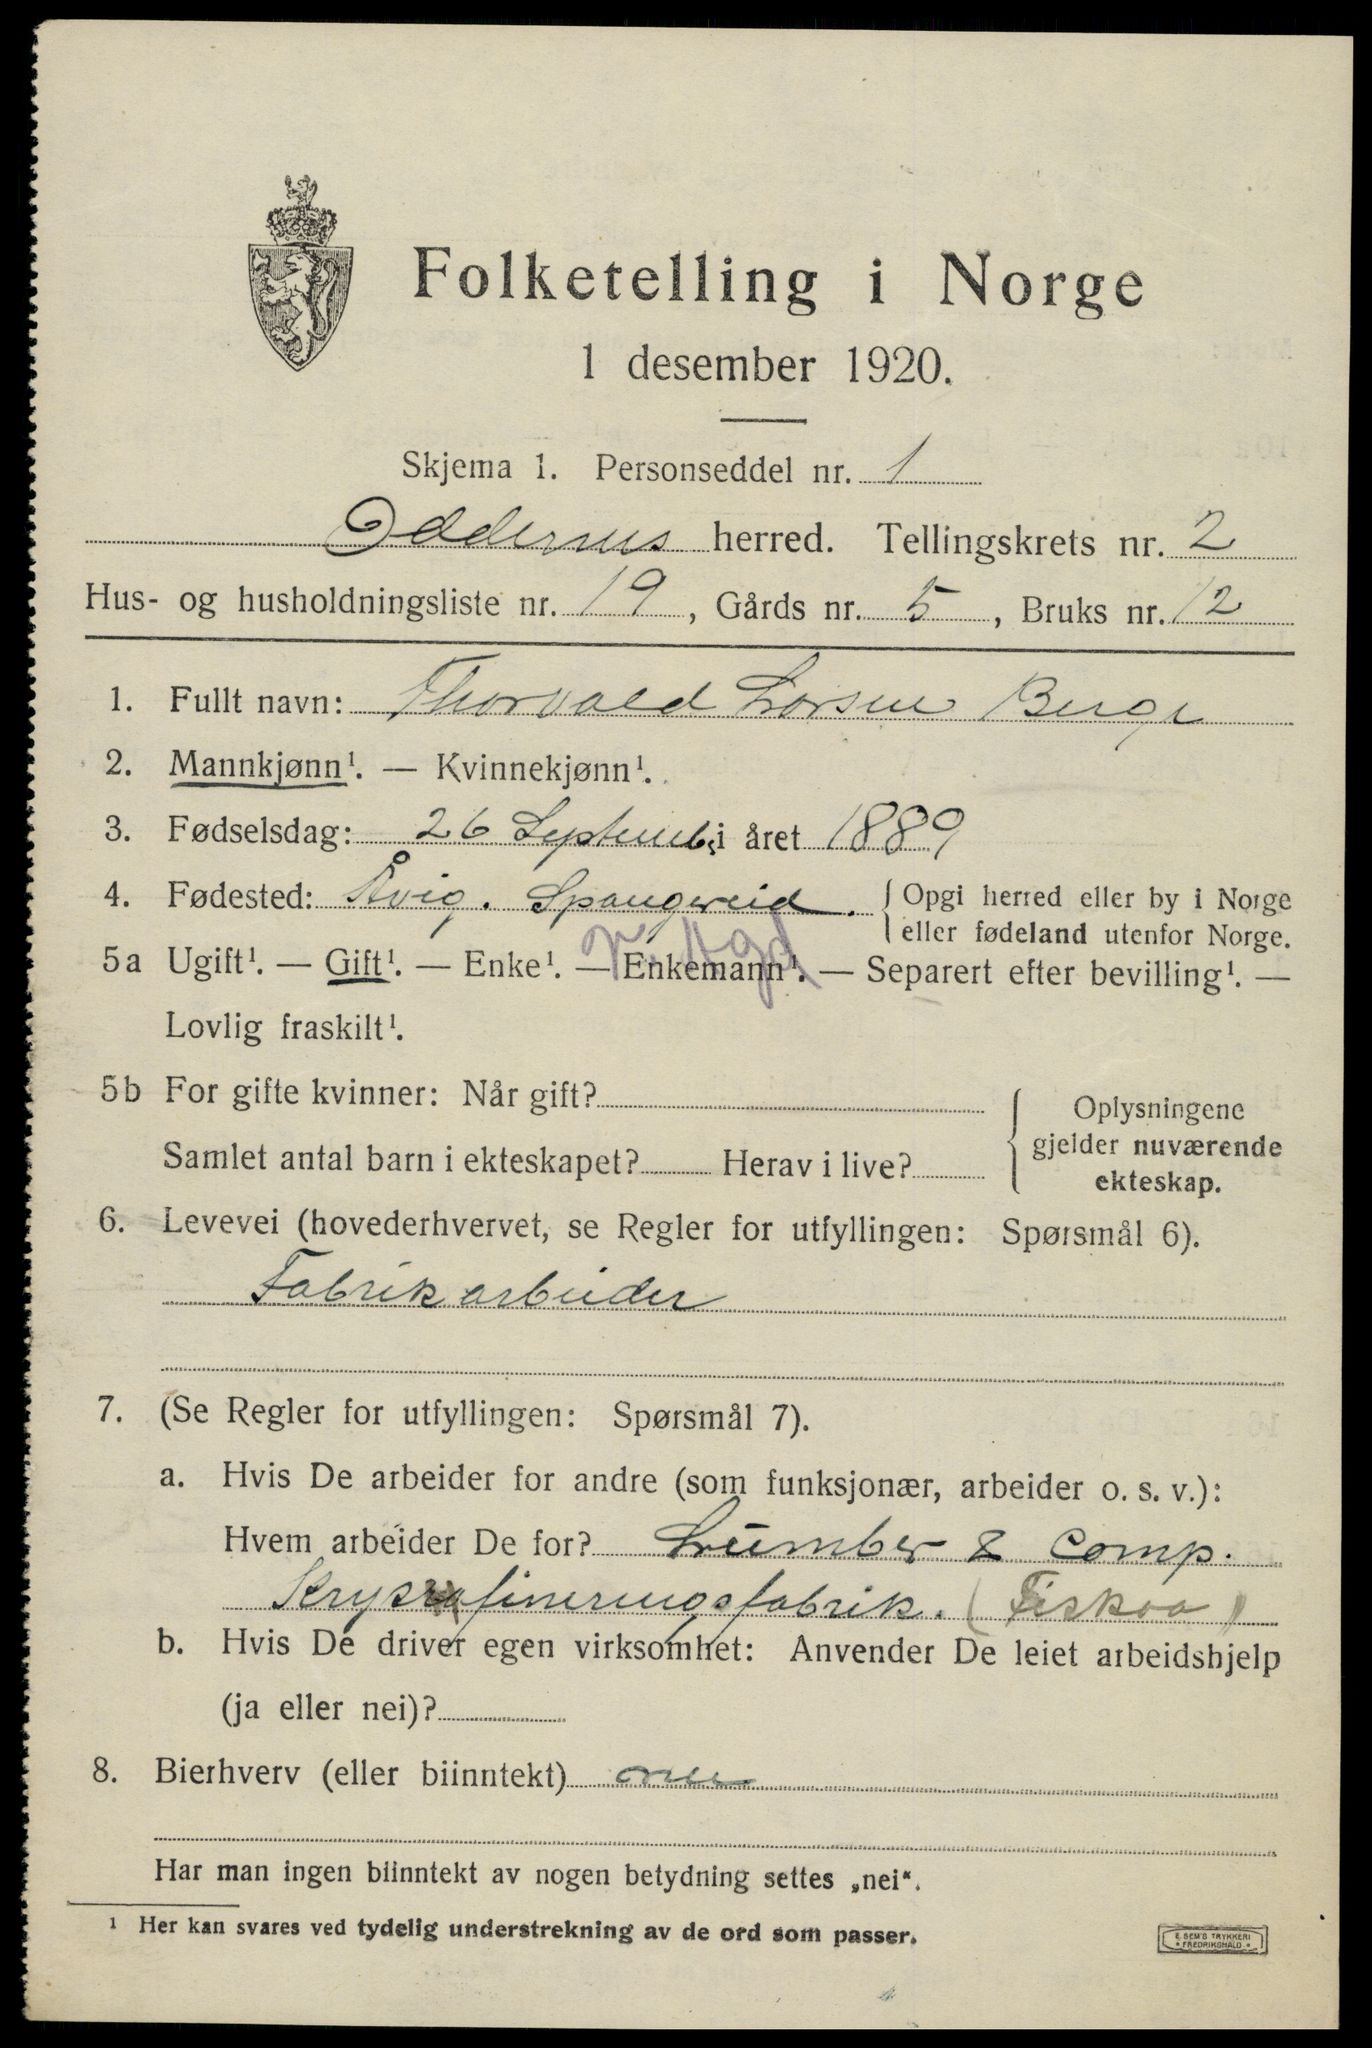 Folketelling i Norge
1 desember 1920.
Skjema 1. Personseddel nr. 1
Oddernes herred. Tellingskrets nr. 2
Hus- og husholdningsliste nr. 19, Gårds nr. 5, Bruks nr. 12
1. Fullt navn: Thorvald Larsen Berge
2. Mannkjønn¹. — Kvinnekjønn¹.
3. Fødselsdag: 26 Septemb. i året 1889
4. Fødested: Åvig. Spangereid. { Opgi herred eller by i Norge
eller fødeland utenfor Norge.
V. Agd
5a Ugift¹. — Gift¹. — Enke¹. — Enkemann¹. — Separert efter bevilling¹. —
Lovlig fraskilt¹.
5b For gifte kvinner: Når gift? { Oplysningene
gjelder nuværende
Samlet antal barn i ekteskapet? Herav i live?
ekteskap.
6. Levevei (hovederhvervet, se Regler for utfyllingen: Spørsmål 6).
Fabrikarbeider
7. (Se Regler for utfyllingen: Spørsmål 7).
a. Hvis De arbeider for andre (som funksjonær, arbeider o. s. v.):
Hvem arbeider De for? & Comp.
(Fiskaa)
b. Hvis De driver egen virksomhet: Anvender De leiet arbeidshjelp
(ja eller nei)?
8. Bierhverv (eller biinntekt) nei
Har man ingen biinntekt av nogen betydning settes „nei“.
¹ Her kan svares ved tydelig understrekning av de ord som passer.
E. SEM'S TRYKKERI
• FREDRIKSHALD •